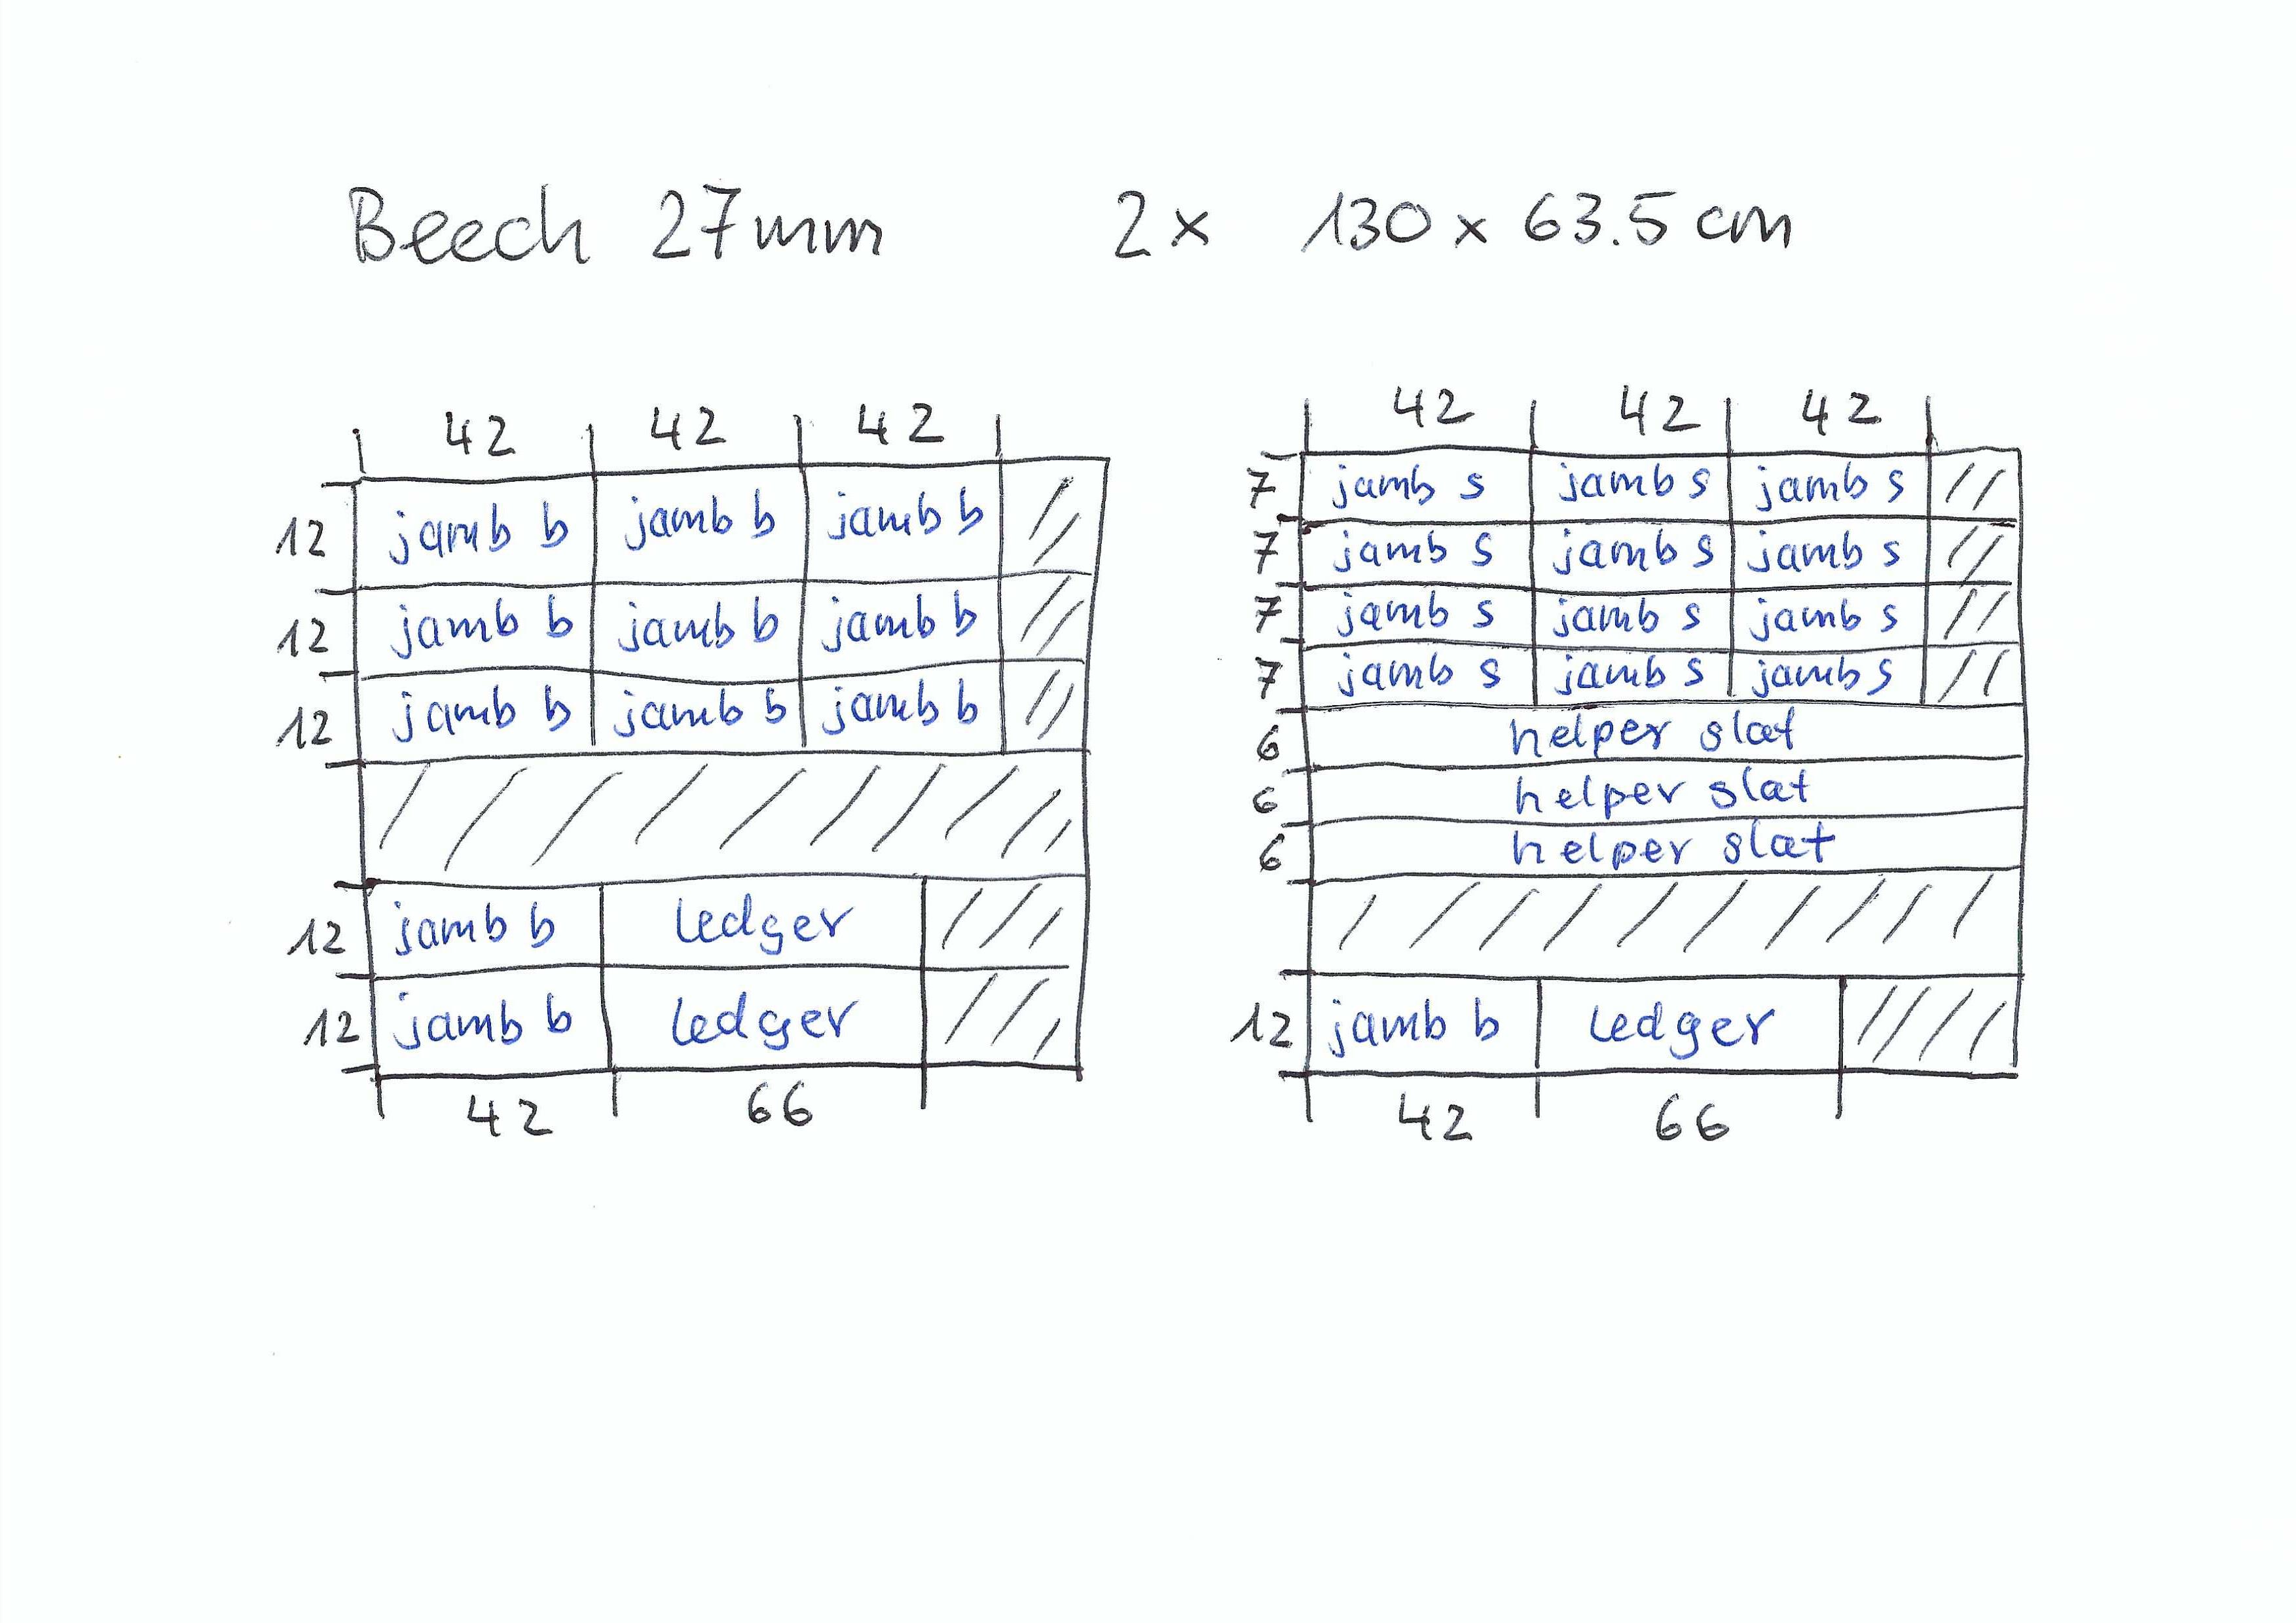 Beech 27mm 2x 130 x 63.5 cm
42 42 42
12 jamb b jamb b jamb b
12 jamb b jamb b jamb b
12 jamb b jamb b jamb b
12 jamb b ledger
12 jamb b ledger
42 66
42 42 42
7 jamb s jamb s jamb s
7 jamb s jamb s jamb s
7 jamb s jamb s jamb s
7 jamb s jamb s jamb s
6 helper slat
6 helper slat
6 helper slat
12 jamb b ledger
42 66